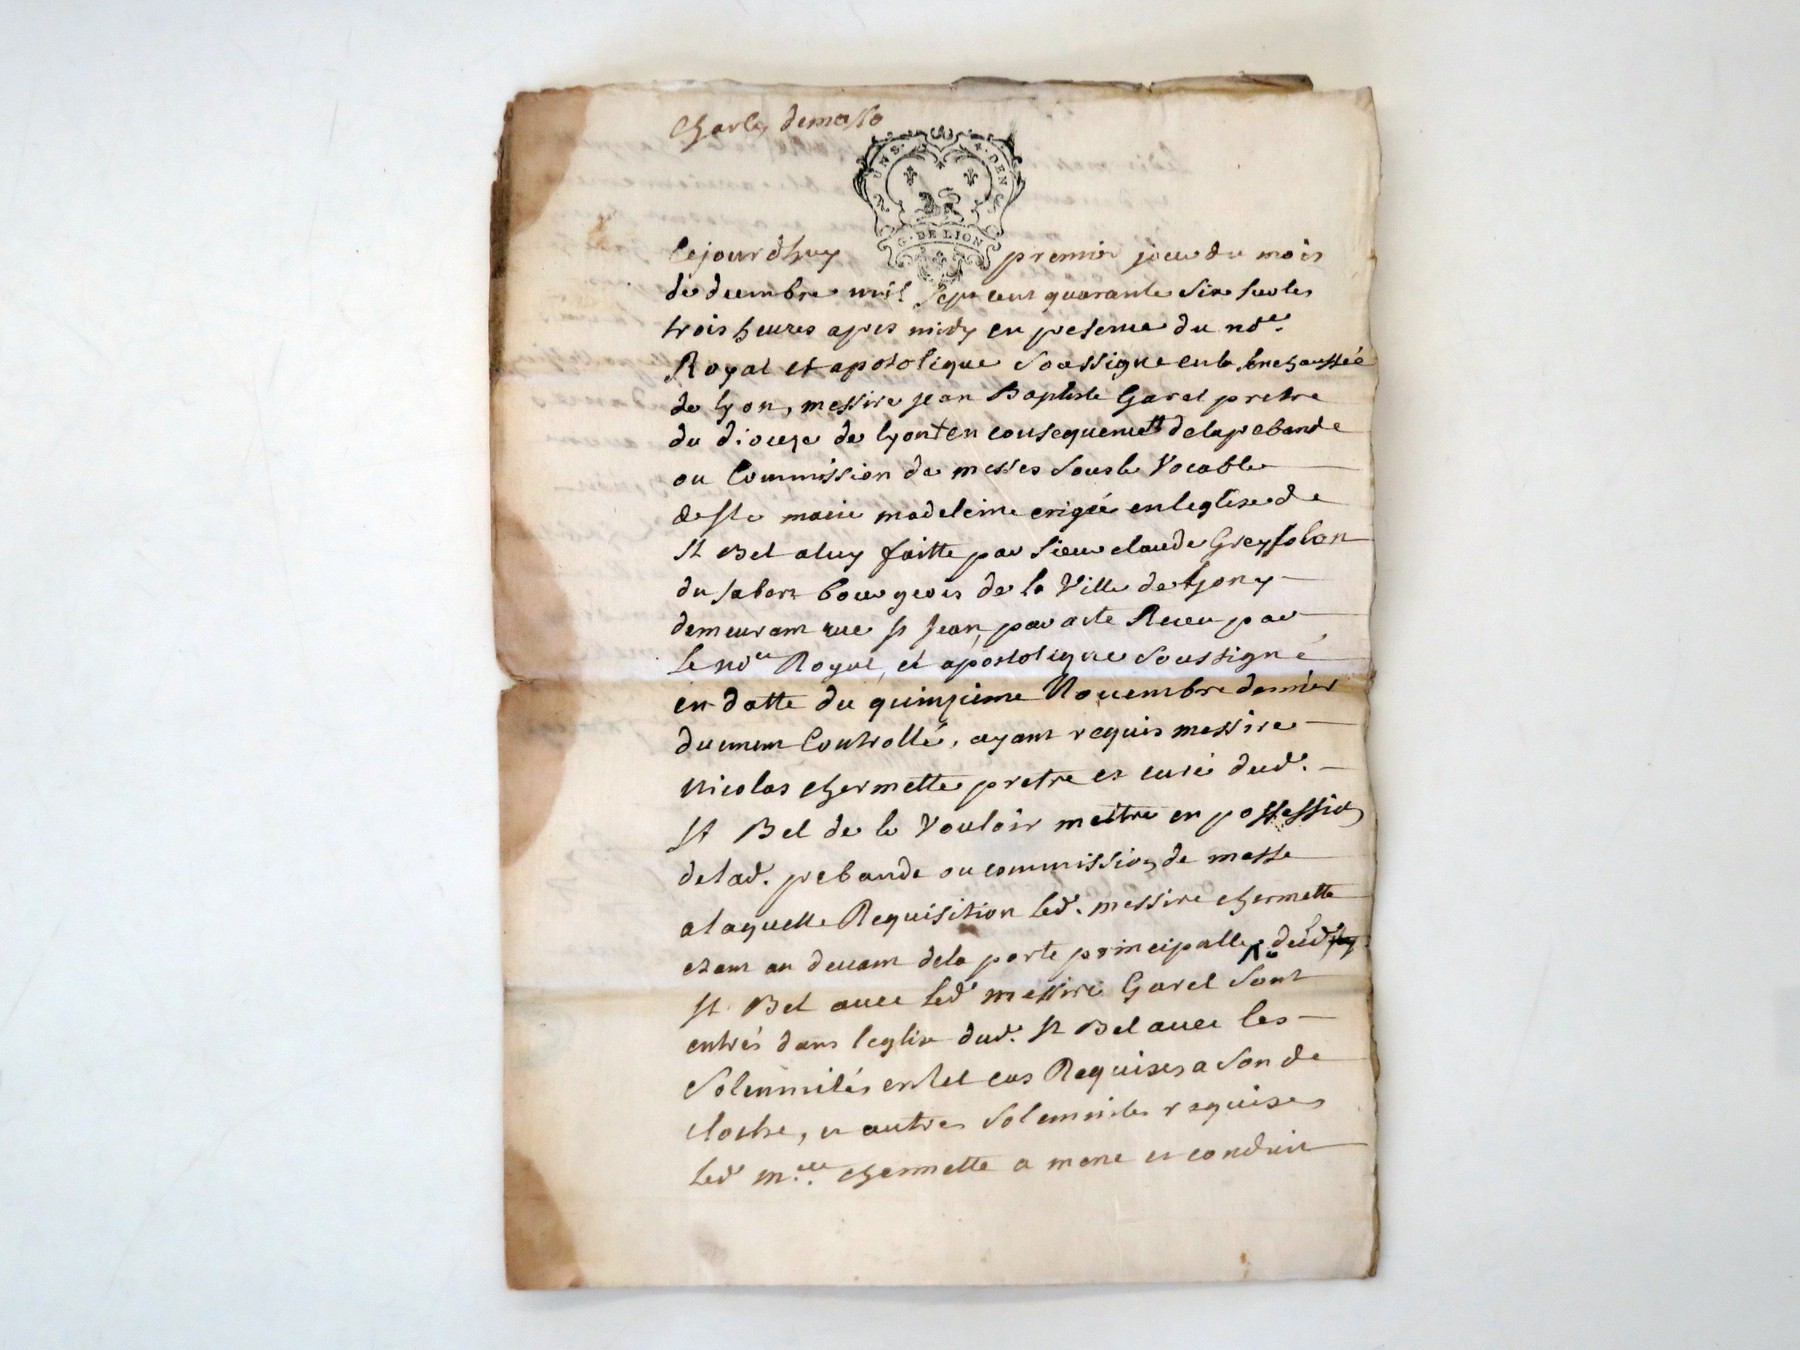 Charles demaso
UN S. 4. DEN
G. DE LION
Cejourdhuy premier jour du mois
de decembre mil sept cent quarante six sur les
trois heures apres midy en presence du nore.
Royal et apostolique Soussigné en la senechaussée
de Lyon, messire jean Baptiste Garel pretre
du dioceze de lyon et en consequence de la prebande
ou Commission de messes Sous le Vocable
de Ste marie madeleine erigée en leglise de
St Bel a luy faitte par Sieur claude Greysolon
du bourgeois de la Ville de Lyon y
demeurant rue St Jean, par acte Receu par
le nore Royal, et apostolique Soussigné
en datte du quinzieme Novembre dernier
duement Controllé, ayant requis messire
Nicolas chermette pretre et curé dud.
St Bel de le Vouloir mettre en possession
de lad. prebande ou commission de messe
a laquelle Requisition led. messire chermette
etant au devant de la porte principalle dud
St Bel avec led messire Garel Sont
entrés dans leglise dud. St Bel avec les
Solemnités en tel cas Requises a Son de
cloche, et autres Solemnités requises
led mre. chermette a mené et conduit